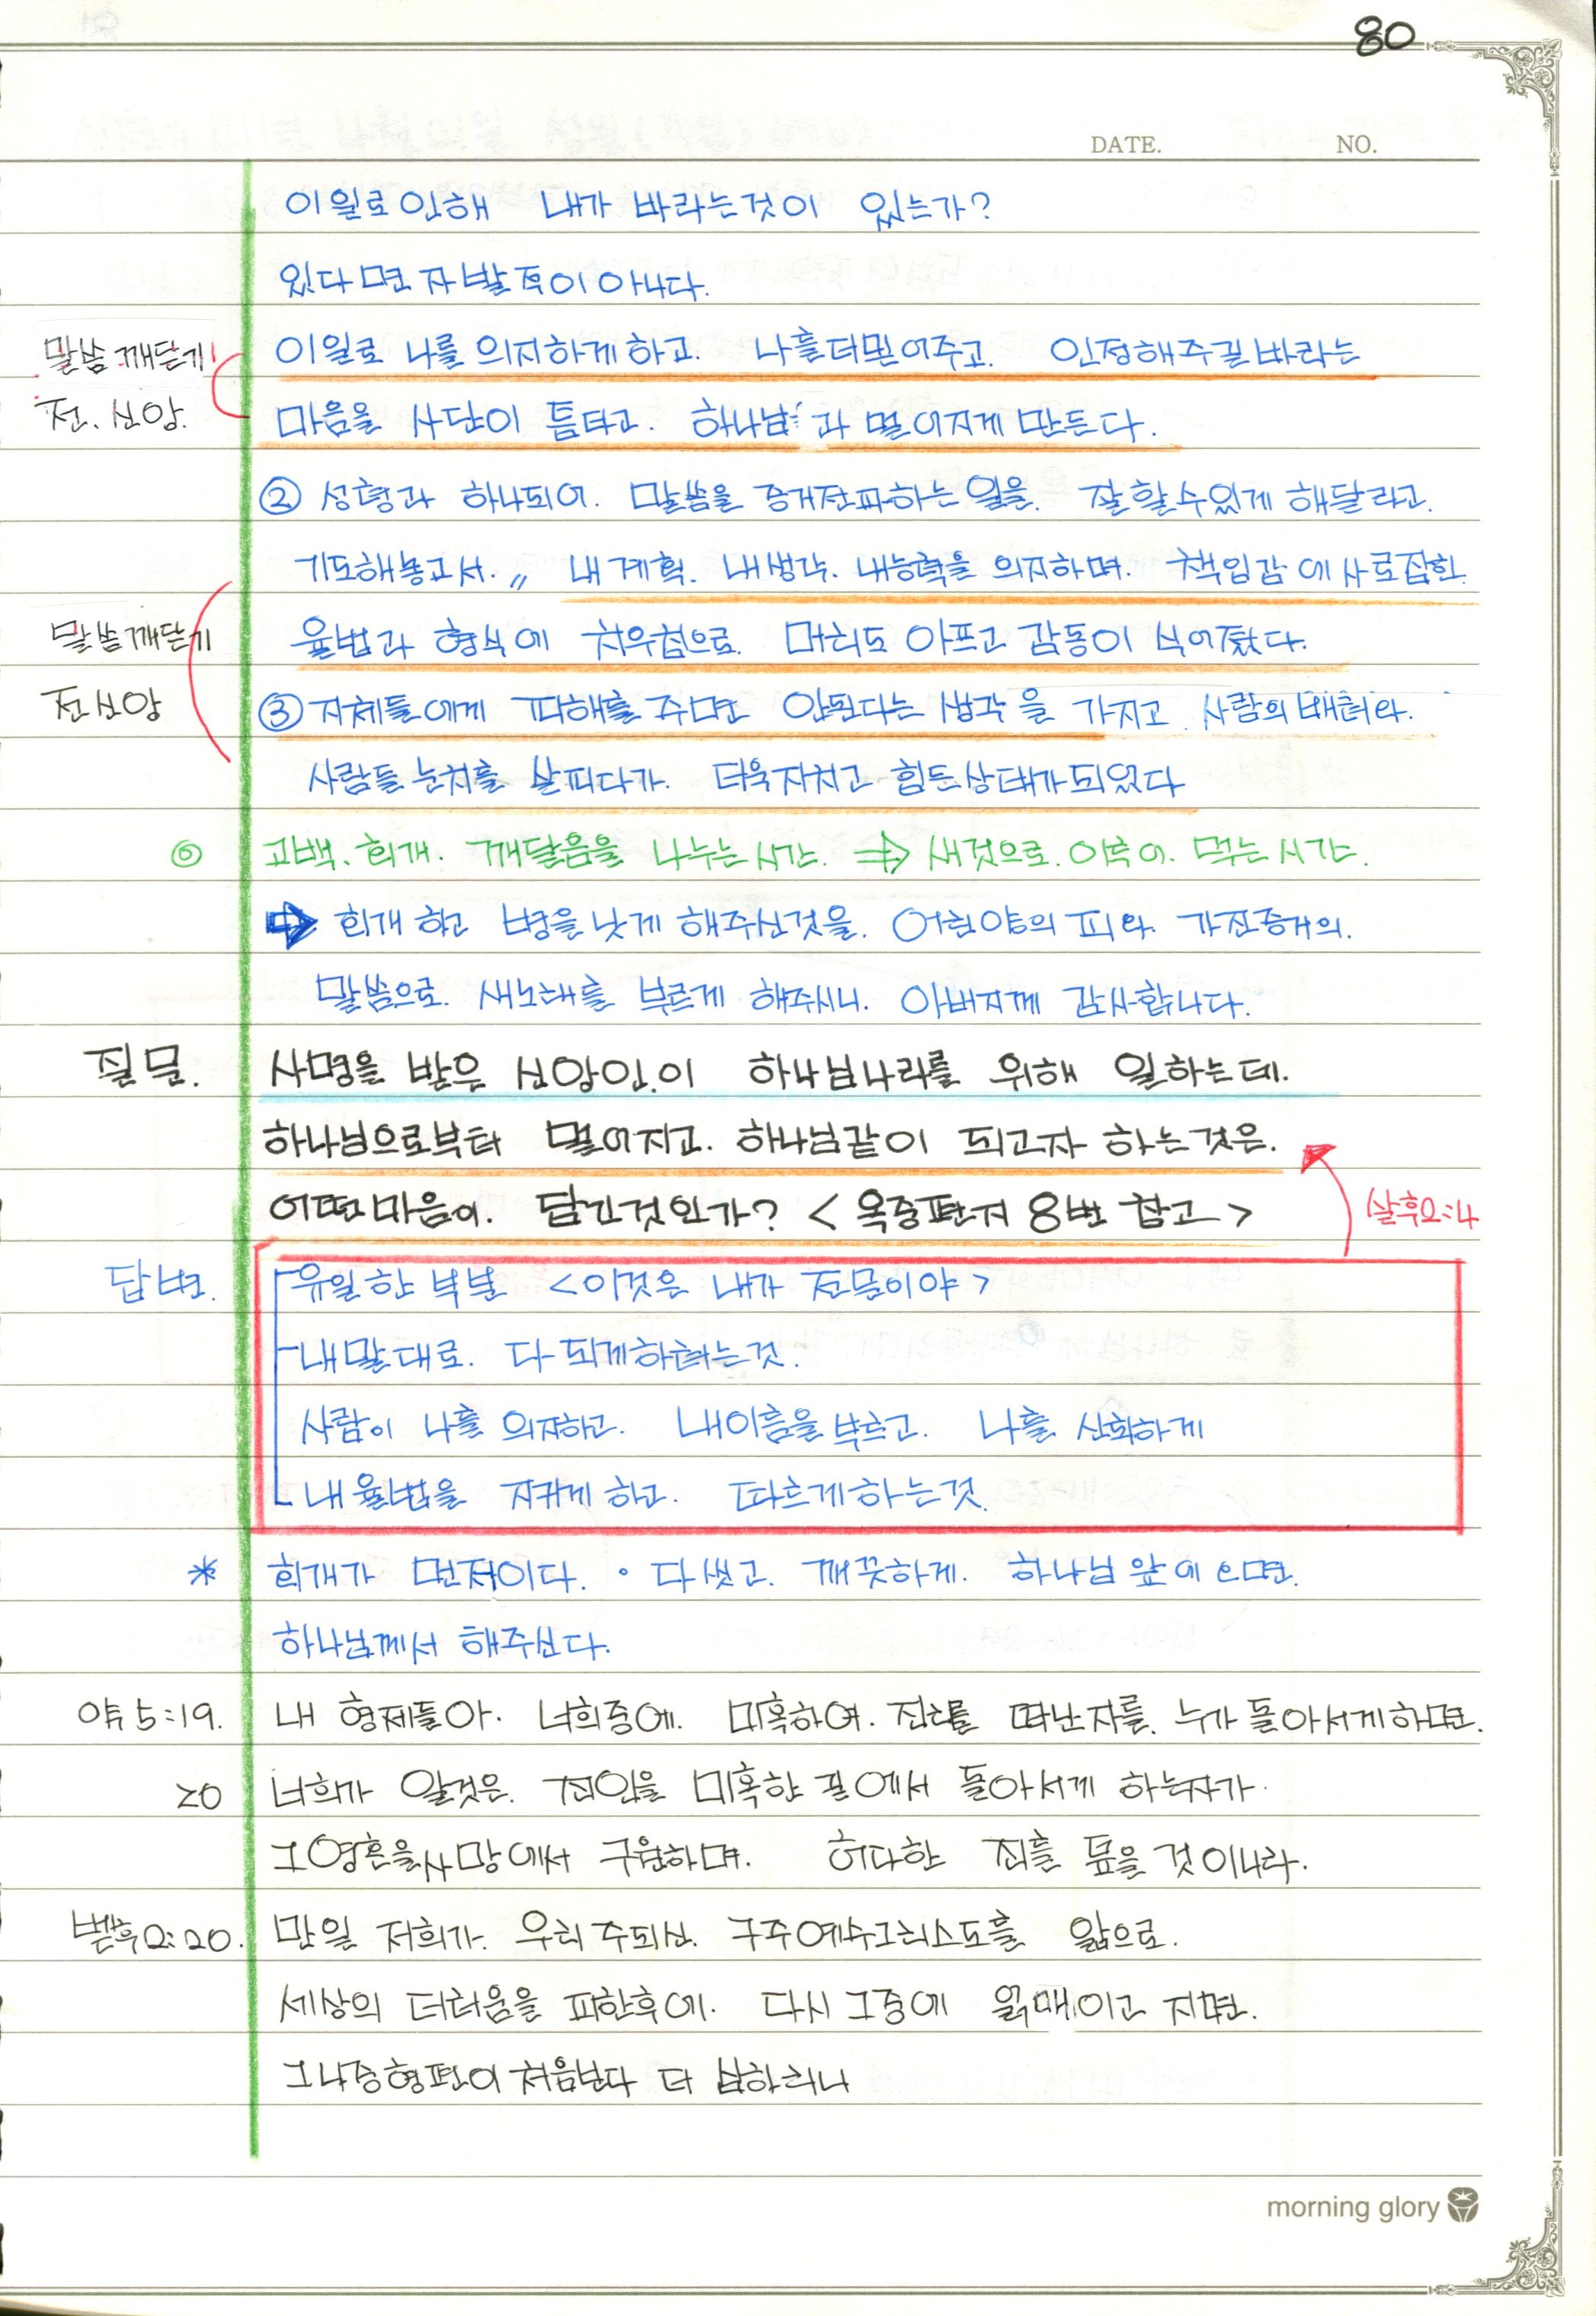 80
DATE. NO.
이일로인해 내가 바라는것이 있는가?
있다면 자발적이아니다.
말씀 깨닫기 이일로 나를 의지하게하고. 나를더믿어주고. 인정해주길바라는
전.신앙. 마음을 사단이 틈타고. 하나님과 멀어지게 만든다.
② 성령과 하나되어. 말씀을 증거전파하는 일을. 잘할수있게 해달라고.
기도해놓고서.〃 내계획. 내생각. 내능력을 의지하며. 책임감에사로잡힌.
말씀깨닫기 율법과 형식에 치우침으로. 머리도 아프고 감동이 식어졌다.
전신앙 ③지체들에게 피해를 주면 안된다는 생각을 가지고. 사람의배려와.
사람들눈치를 살피다가. 더욱지치고 힘든상태가되었다
⑥ 고백.회개. 깨달음을 나누는시간. ⇒ 새것으로.이루어. 먹는시간.
⇒ 회개하고 병을낫게 해주신것을. 어린양의 피와 가진증거의.
말씀으로. 새노래를 부르게 해주시니. 아버지께 감사합니다.
질문. 사명을 받은 신앙인.이 하나님나라를 위해 일하는데.
하나님으로부터 멀어지고. 하나님같이 되고자 하는것은.
어떤마음이. 담긴것인가? < 옥중편지 8번 참고 >
살후2:4
답변. 유일한 부분 <이것은 내가 전문이야>
내말대로. 다되게하려는것.
사람이 나를 의지하고. 내이름을부르고. 나를 신화하게
내율법을 지키게하고. 따르게하는것.
* 회개가 먼저이다. 。다씻고. 깨끗하게. 하나님앞에오면.
하나님께서 해주신다.
야5:19. 내 형제들아. 너희중에. 미혹하여. 진리를 떠난자를. 누가돌아서게하면.
20 너희가 알것은. 죄인을 미혹한 길에서 돌아서게 하는자가.
그영혼을사망에서 구원하며. 허다한 죄를 덮을것이니라.
벧후2:20. 만일 저희가. 우리주되신. 구주예수그리스도를 앎으로.
세상의 더러움을 피한후에. 다시그중에 얽매이고 지면.
그나중형편이처음보다 더 심하리니
morning glory